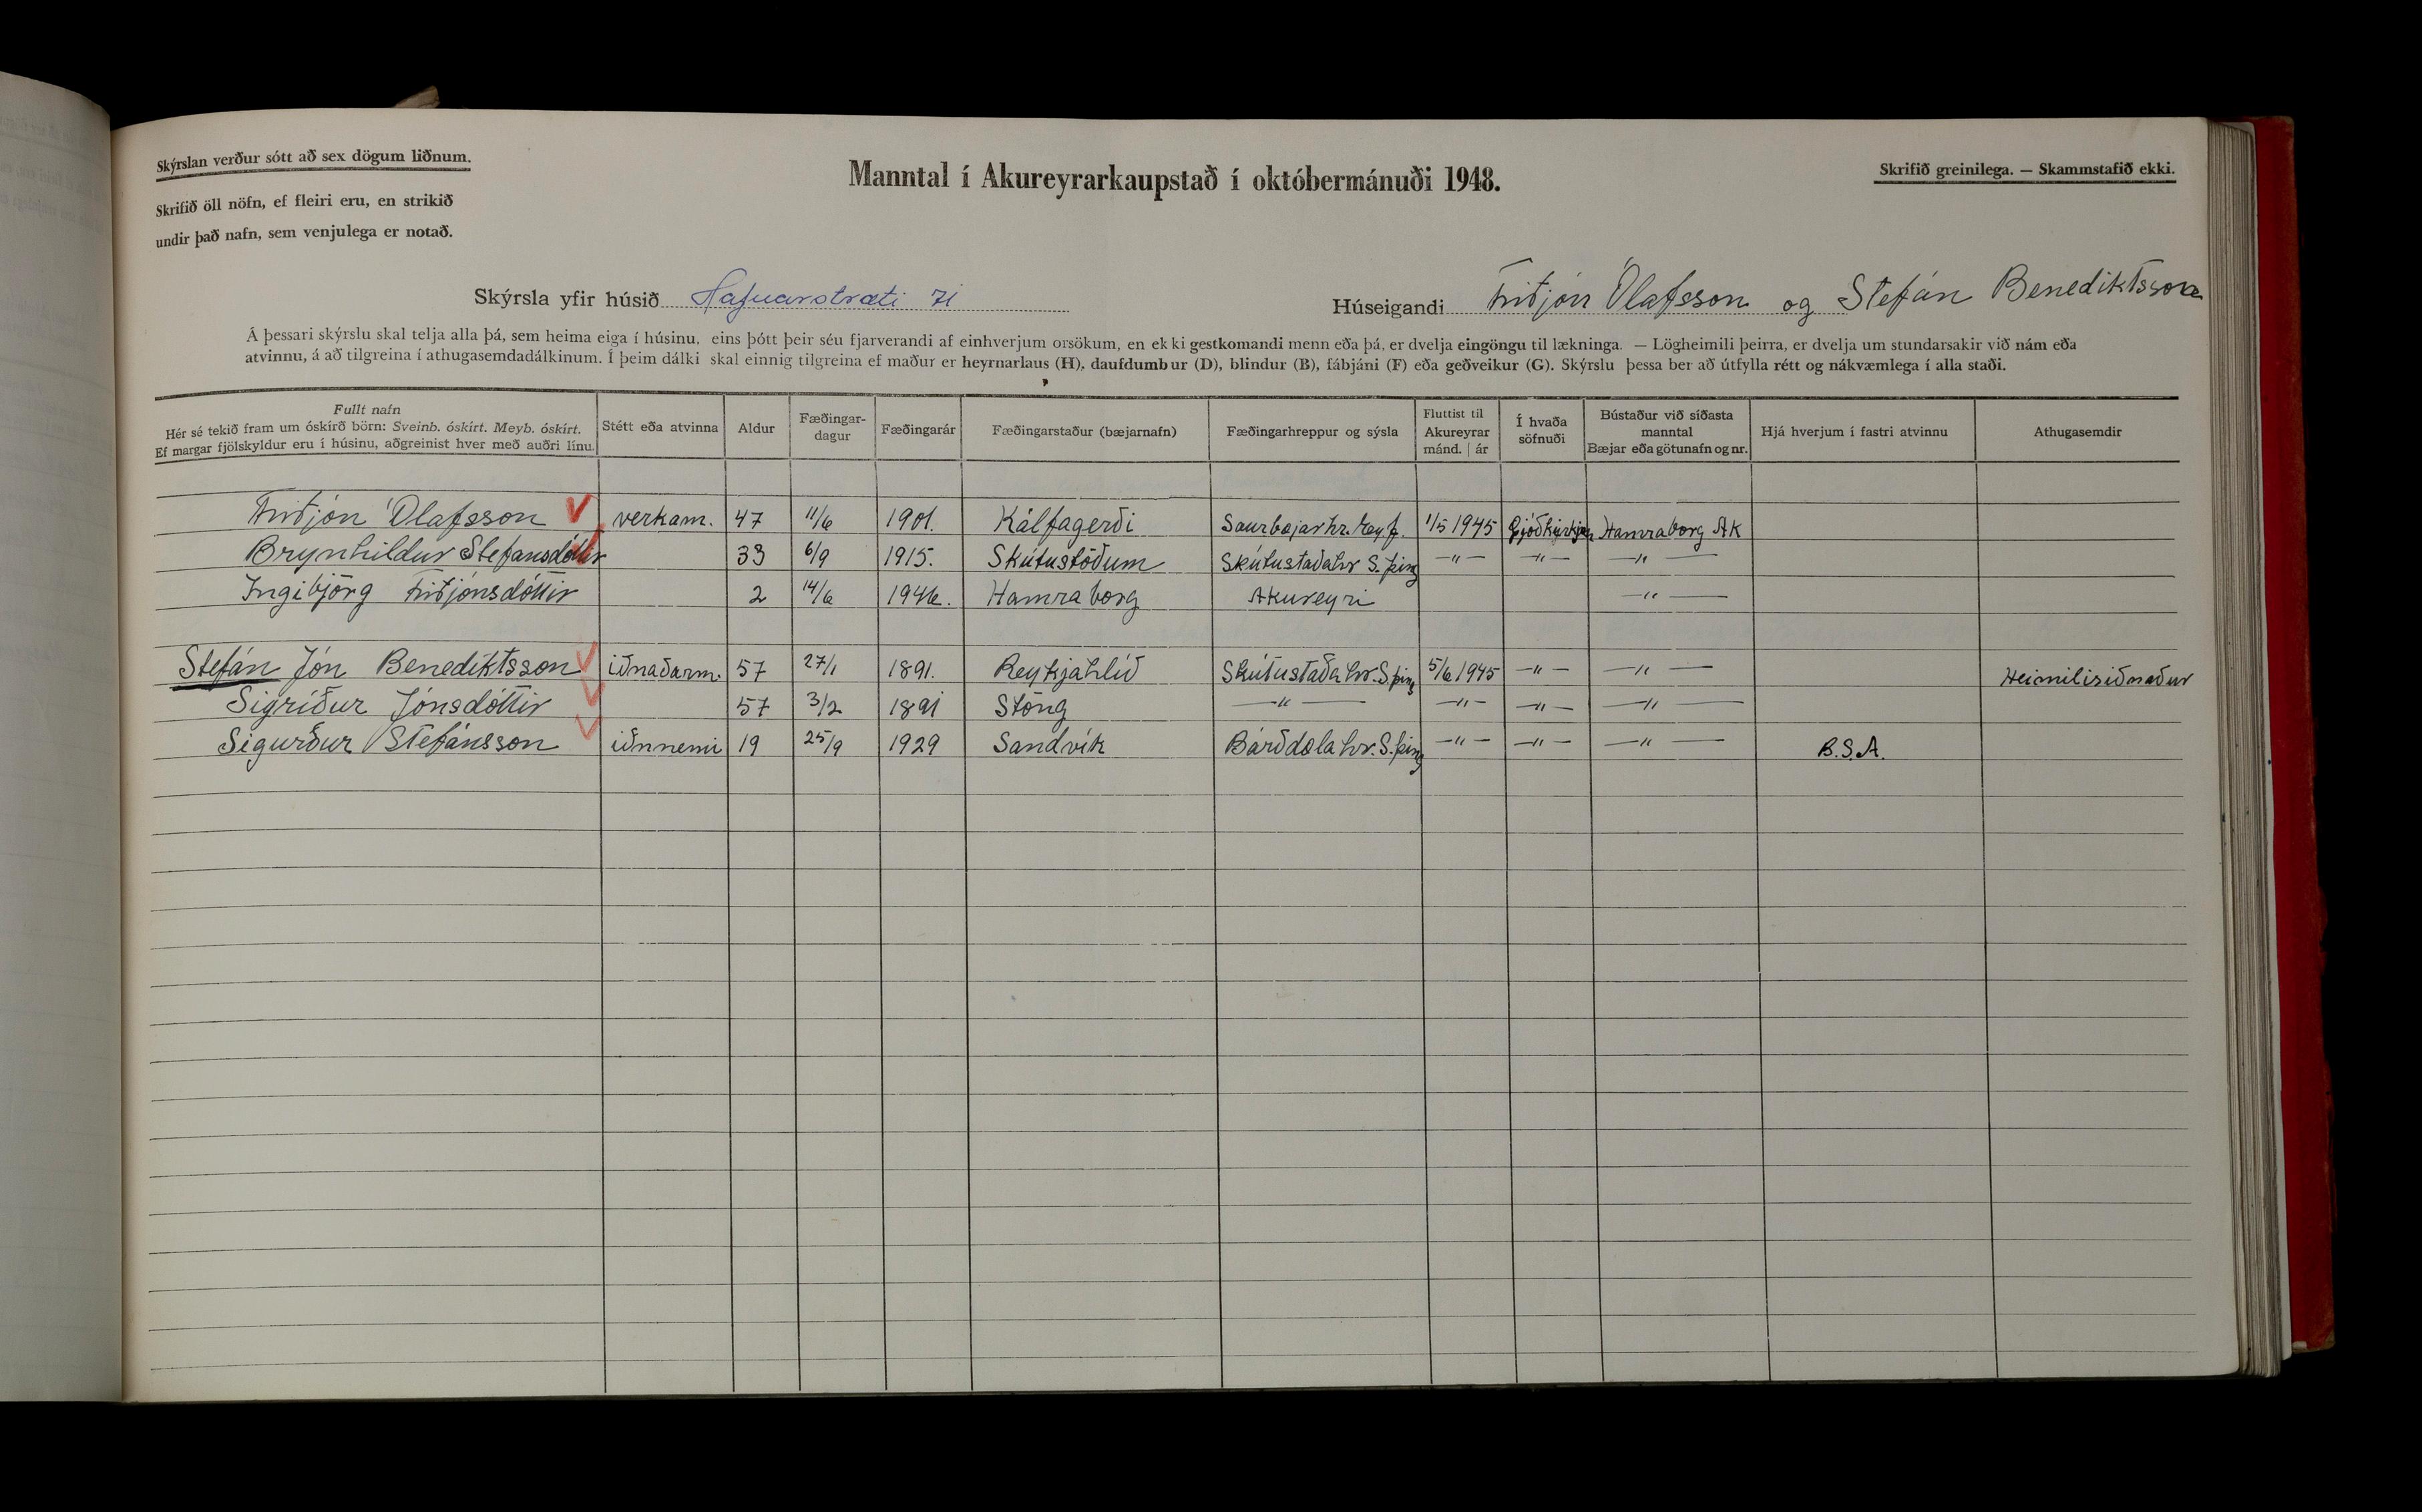 Skýrslan verður sótt að sex dögum liðnum.
Skrifið öll nöfn, ef fleiri eru, en strikið
undir það nafn, sem venjulega er notað.
Manntal í Akureyrarkaupstað í októbermánuði 1948.
Skrifið greinilega. — Skammstafið ekki.
Skýrsla yfir húsið Hafnarstræti 71
Húseigandi Friðjón Ólafsson og Stefán Benediktsson
Á þessari skýrslu skal telja alla þá, sem heima eiga í húsinu, eins þótt þeir séu fjarverandi af einhverjum orsökum, en ekki gestkomandi menn eða þá, er dvelja eingöngu til lækninga. — Lögheimili þeirra, er dvelja um stundarsakir við nám eða
atvinnu, á að tilgreina í athugasemdadálkinum. Í þeim dálki skal einnig tilgreina ef maður er heyrnarlaus (H), daufdumbur (D), blindur (B), fábjáni (F) eða geðveikur (G). Skýrslu þessa ber að útfylla rétt og nákvæmlega í alla staði.
Fullt nafn
Hér sé tekið fram um óskírð börn: Sveinb. óskírt. Meyb. óskírt.
Ef margar fjölskyldur eru í húsinu, aðgreinist hver með auðri línu.
Stétt eða atvinna
Aldur
Fæðingar-
dagur
Fæðingarár
Fæðingarstaður (bæjarnafn)
Fæðingarhreppur og sýsla
Fluttist til
Akureyrar
mánd. | ár
Í hvaða
söfnuði
Bústaður við síðasta
manntal
Bæjar eða götunafn og nr.
Hjá hverjum í fastri atvinnu
Athugasemdir
Friðjón Ólafsson verkam. 47 11/6 1901. Kálfagerði Saurbæjarhr. Eyf. 1/5 1945 Þjóðkirkjan Hamraborg AK
Brynhildur Stefansdóttir 33 6/9 1915. Skútustöðum Skútustaðahr S. þing —"— —"— —"—
Ingibjörg Friðjónsdóttir 2 14/6 1946. Hamraborg Akureyri —"—
Stefán Jón Benediktsson iðnaðarm. 57 27/1 1891. Reykjahlíð Skútustaðahr. S. þing 5/6 1945 —"— —"— Heimilisiðnaður
Sigríður Jónsdóttir 57 3/2 1891 Stöng —"— —"— —"— —"—
Sigurður Stefánsson iðnnemi 19 25/9 1929 Sandvík Bárðdælahr. S. þing —"— —"— —"— B.S.A.